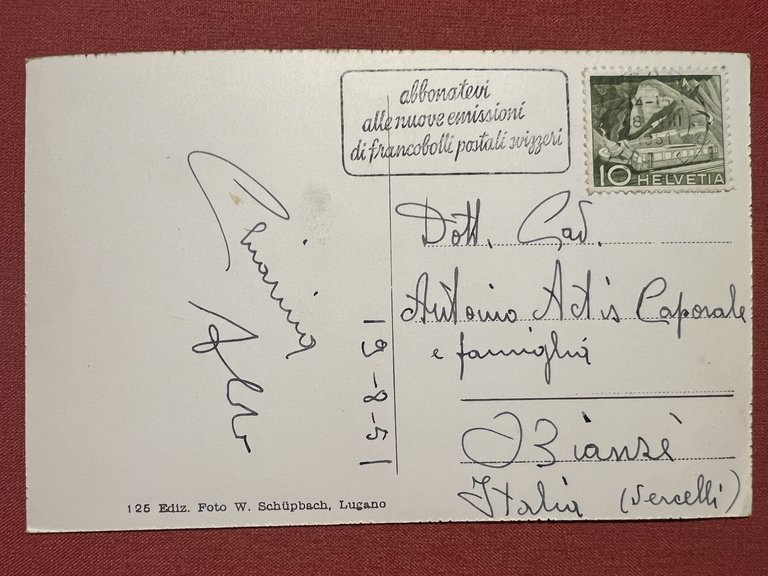 abbonatevi
alle nuove emissioni
di francobolli postali svizzeri
10 HELVETIA
Dott. Cav.
Antonio Actis Caporale
e famiglia
Bianzè
Italia (Vercelli)
19-8-51
Aldo
125 Ediz. Foto W. Schüpbach, Lugano